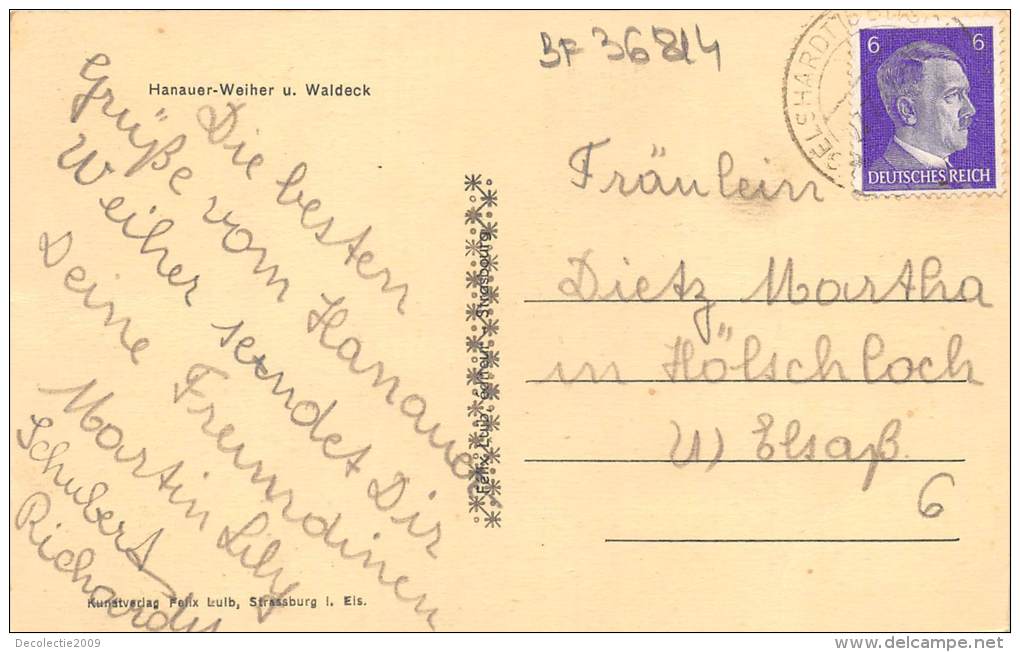 Hanauer-Weiher u. Waldeck
Die besten
Grüße vom Hanauer
Weiher sendet Dir
Deine Freundinen
Martin Lily
Schubert
Richardy
Kunstverlag Felix Luib, Strassburg i. Els.
Felix Luib, éditeur - Strasbourg
BF 36814
6 6
DEUTSCHES REICH
Fräulein
Dietz Martha
in Hölschloch
U/ Elsaß
6
Decolectie2009
www.delcampe.net